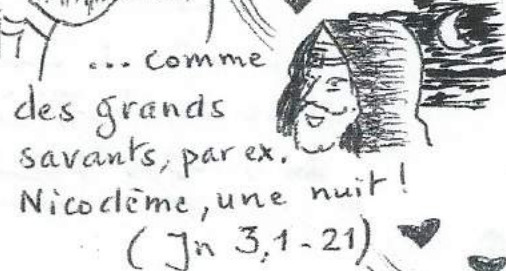 ... comme
des grands
savants, par ex.
Nicodème, une nuit!
(Jn 3,1-21)